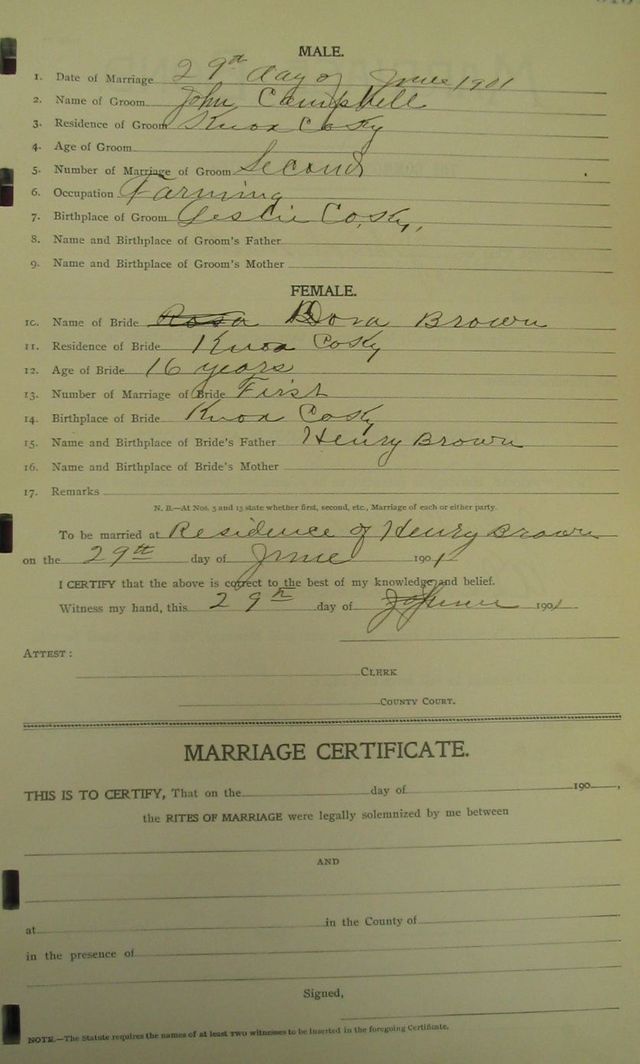 MALE.
1. Date of Marriage 29th day of June 1901
2. Name of Groom John Campbell
3. Residence of Groom Knox Co Ky
4. Age of Groom
5. Number of Marriage of Groom Second
6. Occupation Farming
7. Birthplace of Groom Leslie Co. Ky.
8. Name and Birthplace of Groom's Father
9. Name and Birthplace of Groom's Mother
FEMALE.
10. Name of Bride Rosa Dora Brown
11. Residence of Bride Knox Co Ky
12. Age of Bride 16 years
13. Number of Marriage of Bride First
14. Birthplace of Bride Knox Co Ky
15. Name and Birthplace of Bride's Father Henry Brown
16. Name and Birthplace of Bride's Mother
17. Remarks
N. B.—At Nos. 5 and 13 state whether first, second, etc., Marriage of each or either party.
To be married at Residence of Henry Brown
on the 29th day of June 1901
I CERTIFY that the above is correct to the best of my knowledge and belief.
Witness my hand, this 29th day of June 1901
ATTEST:
CLERK
COUNTY COURT.
MARRIAGE CERTIFICATE.
THIS IS TO CERTIFY, That on the day of 190 ,
the RITES OF MARRIAGE were legally solemnized by me between
AND
at in the County of
in the presence of
Signed,
NOTE.—The Statute requires the names of at least two witnesses to be inserted in the foregoing Certificate.